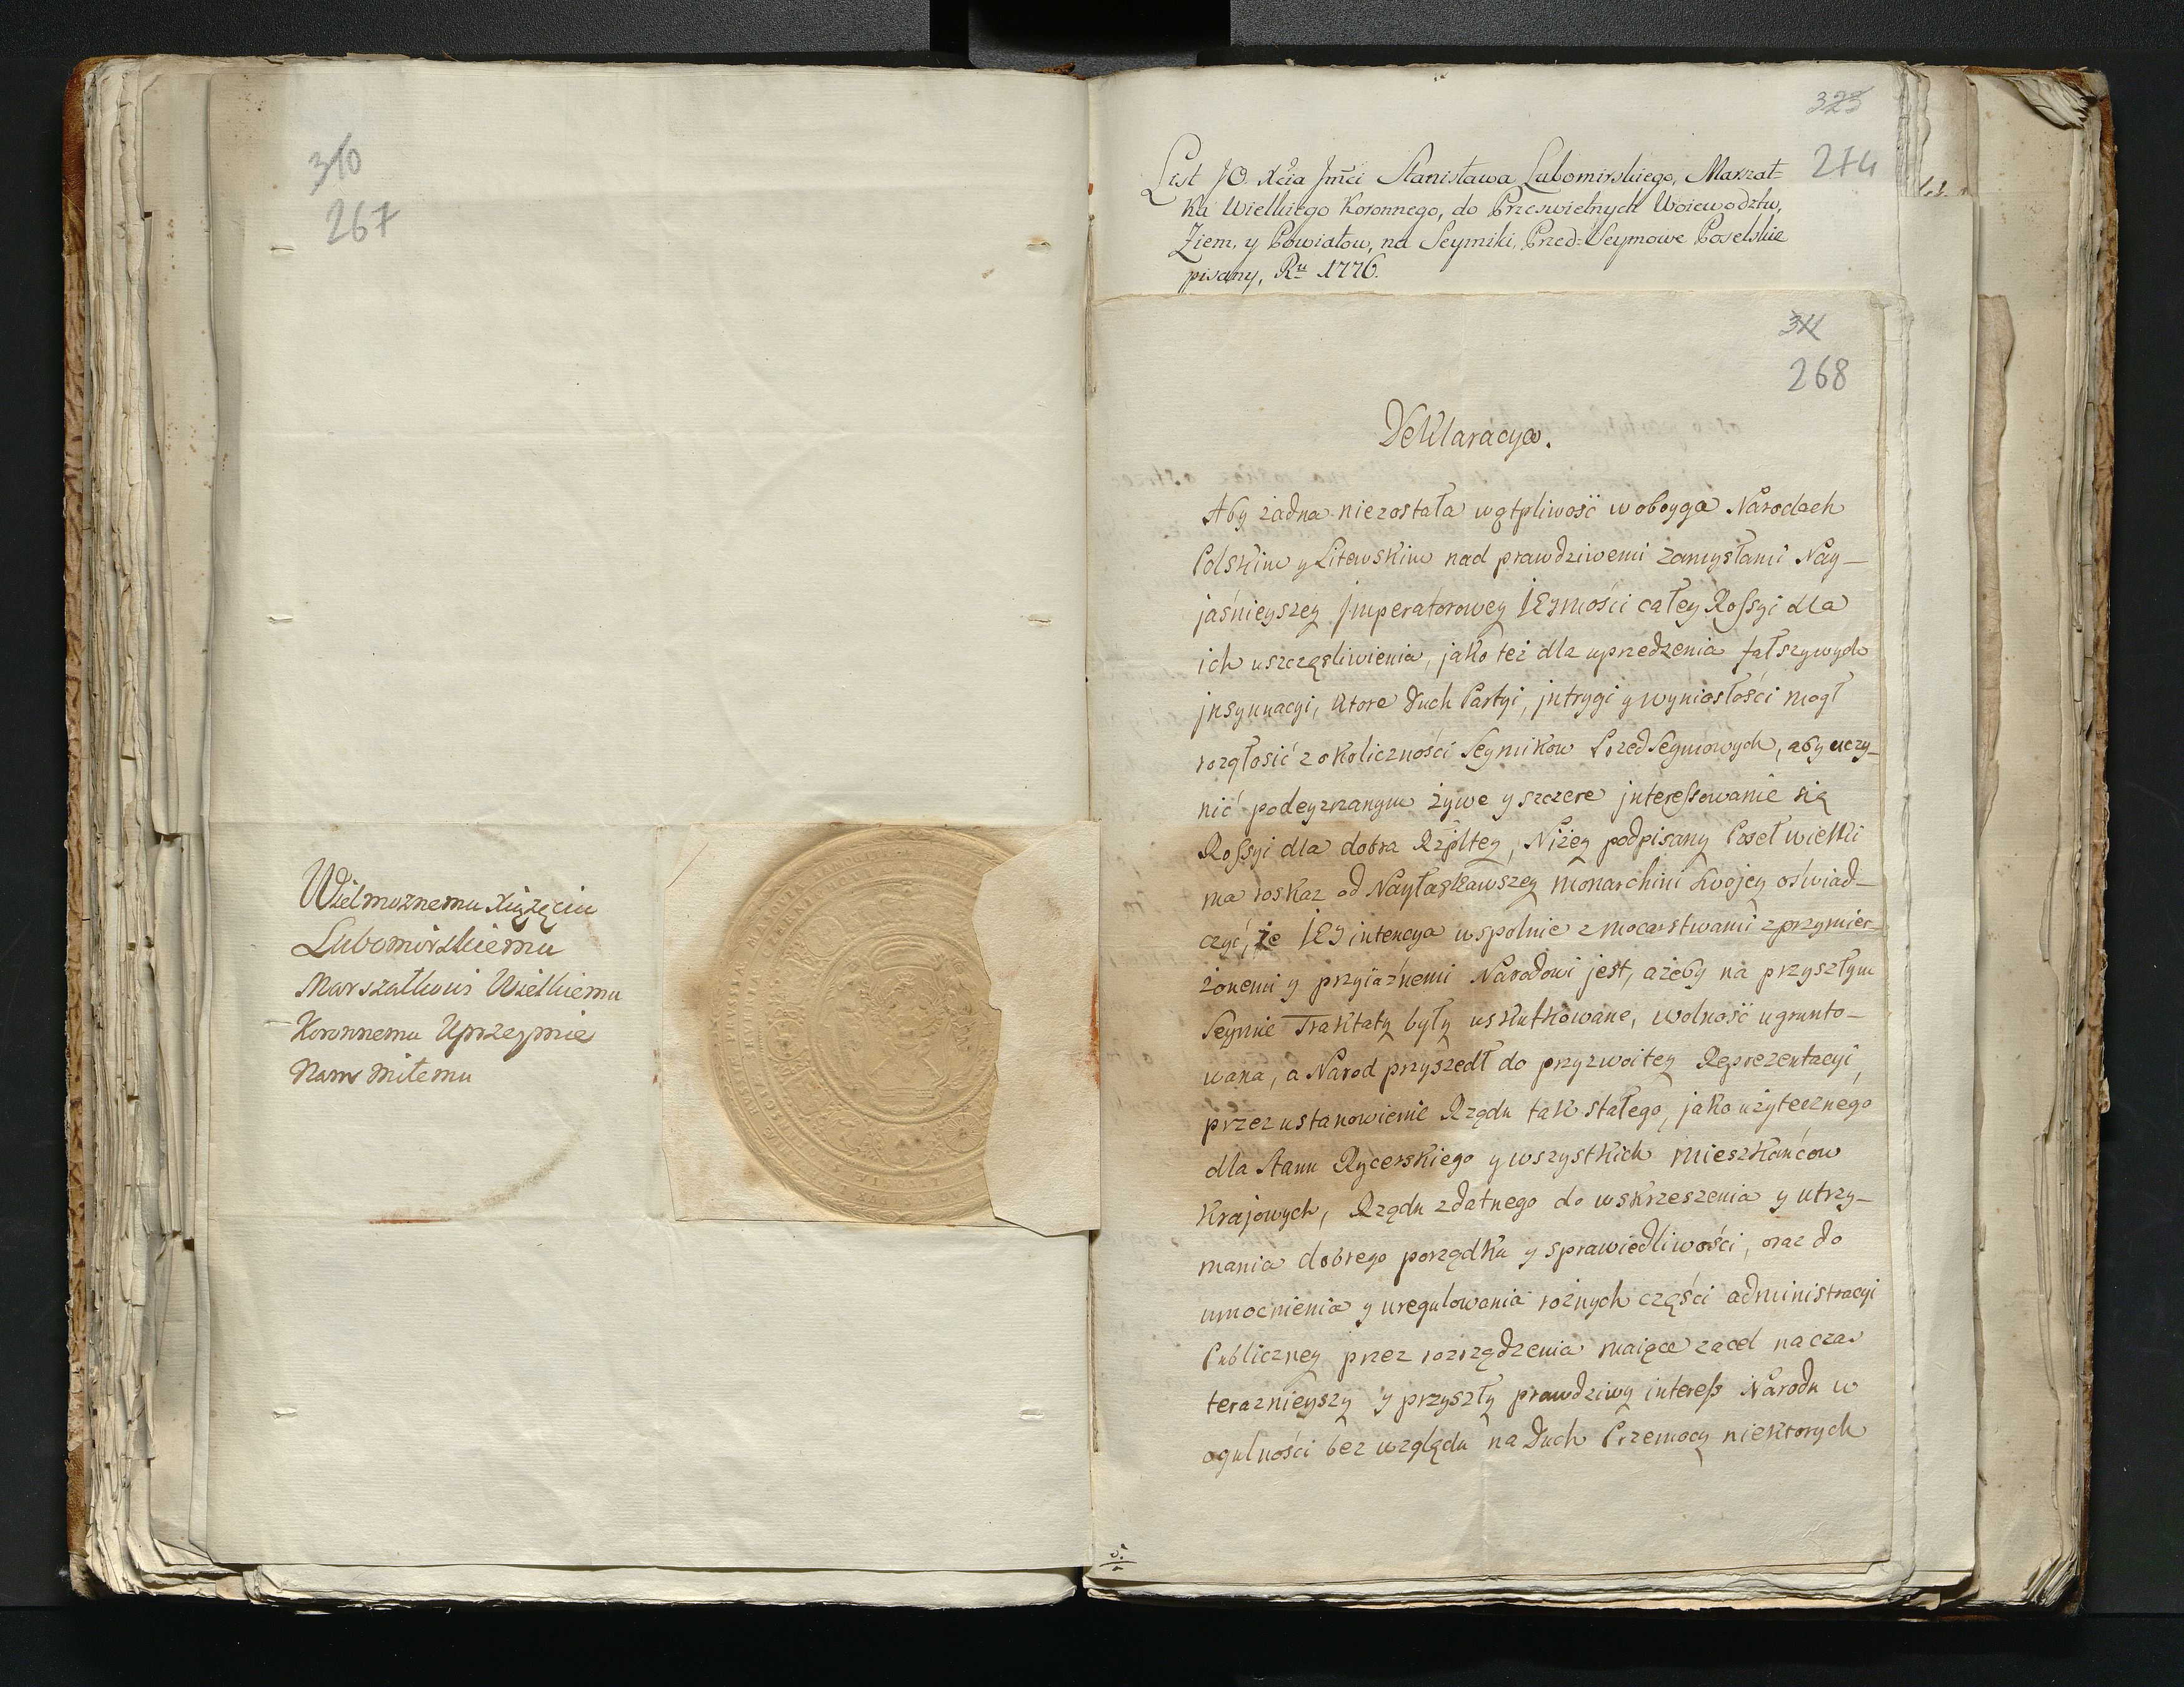 310
267
Wielmoznemu Xiążęciu
Lubomirskiemu
Marszałkowi Wielkiemu
Koronnemu Uprzeymie
Nam miłemu
325
274
List JO. Xcia Jmci Stanisława Lubomirskiego, Marszał-
ka Wielkiego Koronnego, do Przeswietnych Woiewodztw,
Ziem, y Powiatow, na Seymiki, Przed-Seymowe Poselskie
pisany, Ru 1776.
311
268
Deklaracya.
Aby żadna niezostała wątpliwość w oboyga Narodach
Polskim y Litewskim nad prawdziwemi zamysłami Nay-
jaśnieyszey Jmperatorowey JEJmości całey Rossyi dla
ich uszczęsliwienia, jako też dla uprzedzenia fałszywych
jnsynuacyi, ktore Duch Partyi, jntrygi y wyniosłości mogł
rozgłosić z okoliczności Seymikow PrzedSeymowych, aby uczy-
nić podeyrzanym żywe y szczere jnteressowanie się
Rossyi dla dobra Rzpltey, Niżey podpisany Poseł wielki
ma roskaz od Nayłaskawszey Monarchini swojey oświad-
czyć, że JEJ intencya wspolnie z mocarstwami zprzymier-
żonemi y przyiaźnemi Narodowi jest, ażeby na przyszłym
Seymie Traktaty były uskutkowane, wolność ugrunto-
wana, a Narod przyszedł do przyzwoitey Reprezentacyi,
przez ustanowienie Rządu tak stałego, jako użytecznego
dla Stanu Rycerskiego y wszystkich mieszkańcow
Krajowych, Rządu zdatnego do wskrzeszenia y utrzy-
mania dobrego porządku y sprawiedliwości, oraz do
umocnienia y uregulowania rożnych części administracyi
Publiczney przez rozrządzenia maiące zacel na czas
teraznieyszy y przyszły prawdziwy interess Narodu w
ogulności bez względu na Duch Przemocy niektorych